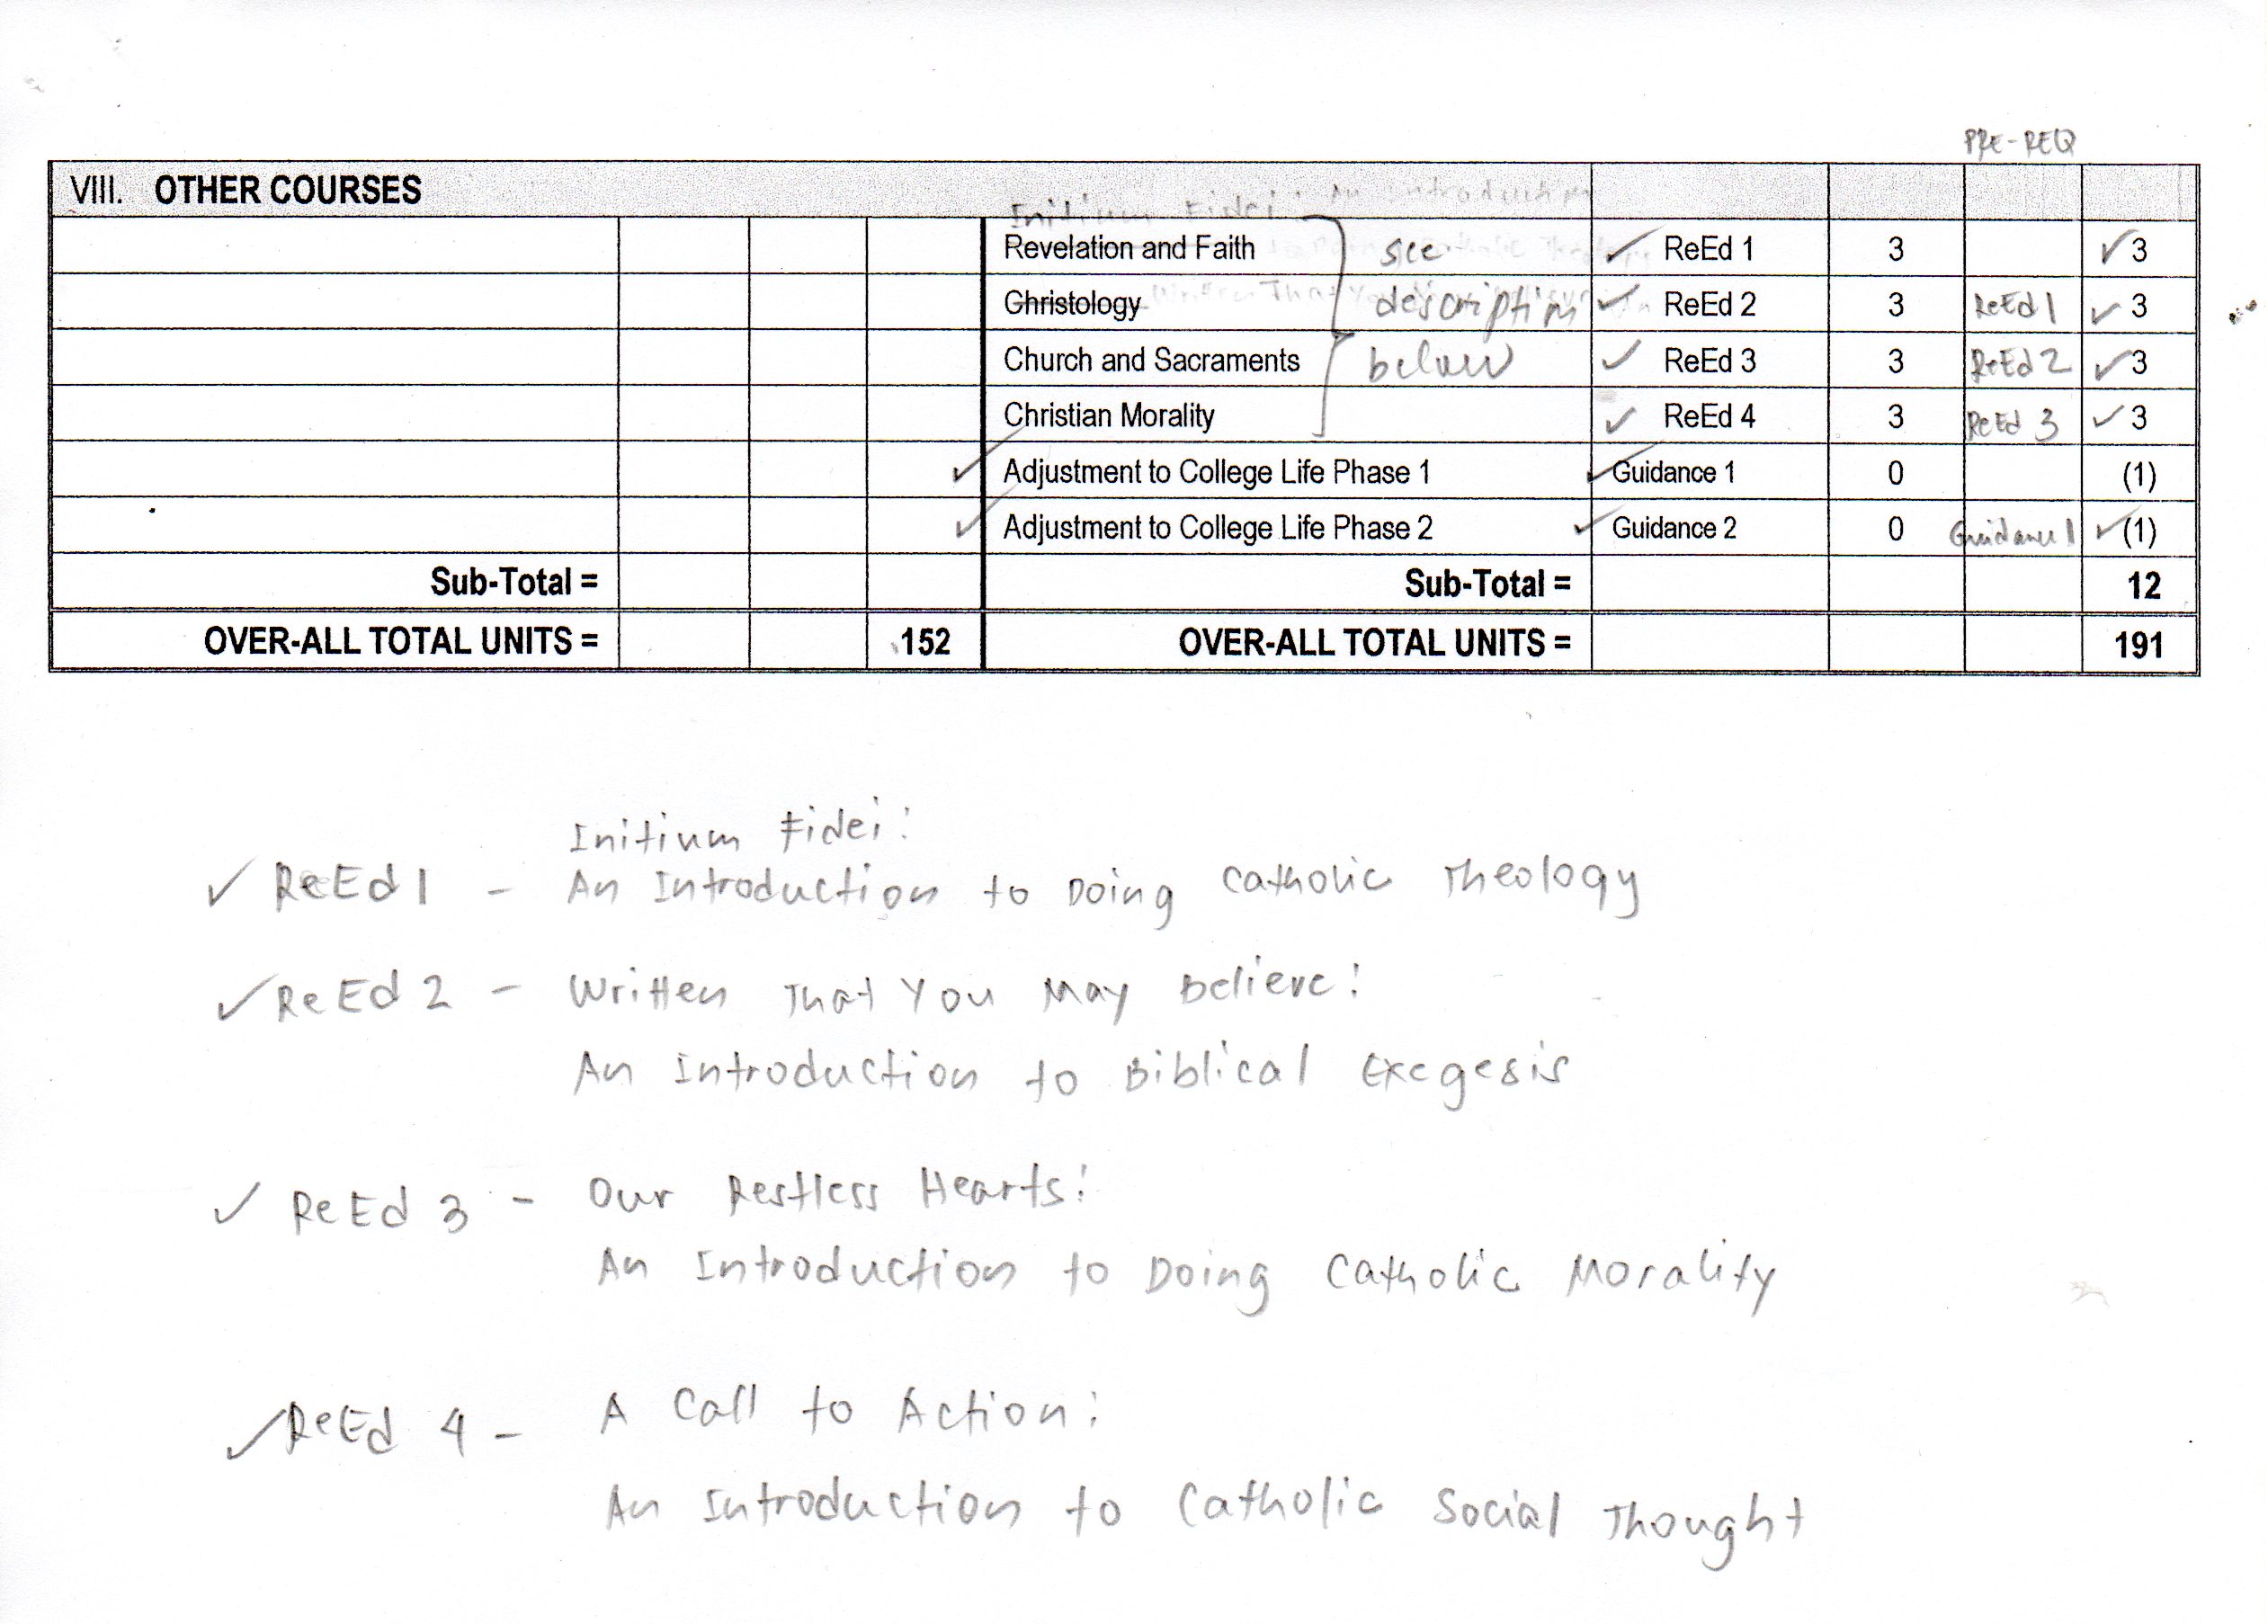 PRE-REQ
VIII. OTHER COURSES
Initium Fidei: An Introduction
Revelation and Faith see ReEd 1 3 3
Christology Written That You description ReEd 2 3 ReEd 1 3
Church and Sacraments below ReEd 3 3 ReEd 2 3
Christian Morality ReEd 4 3 ReEd 3 3
Adjustment to College Life Phase 1 Guidance 1 0 (1)
Adjustment to College Life Phase 2 Guidance 2 0 Guidance 1 (1)
Sub-Total = Sub-Total = 12
OVER-ALL TOTAL UNITS = 152 OVER-ALL TOTAL UNITS = 191
Initium Fidei:
ReEd 1 - An Introduction to Doing Catholic Theology
ReEd 2 - Written That You May Believe:
An Introduction to Biblical Exegesis
ReEd 3 - Our Restless Hearts:
An Introduction to Doing Catholic Morality
ReEd 4 - A Call to Action:
An Introduction to Catholic Social Thought